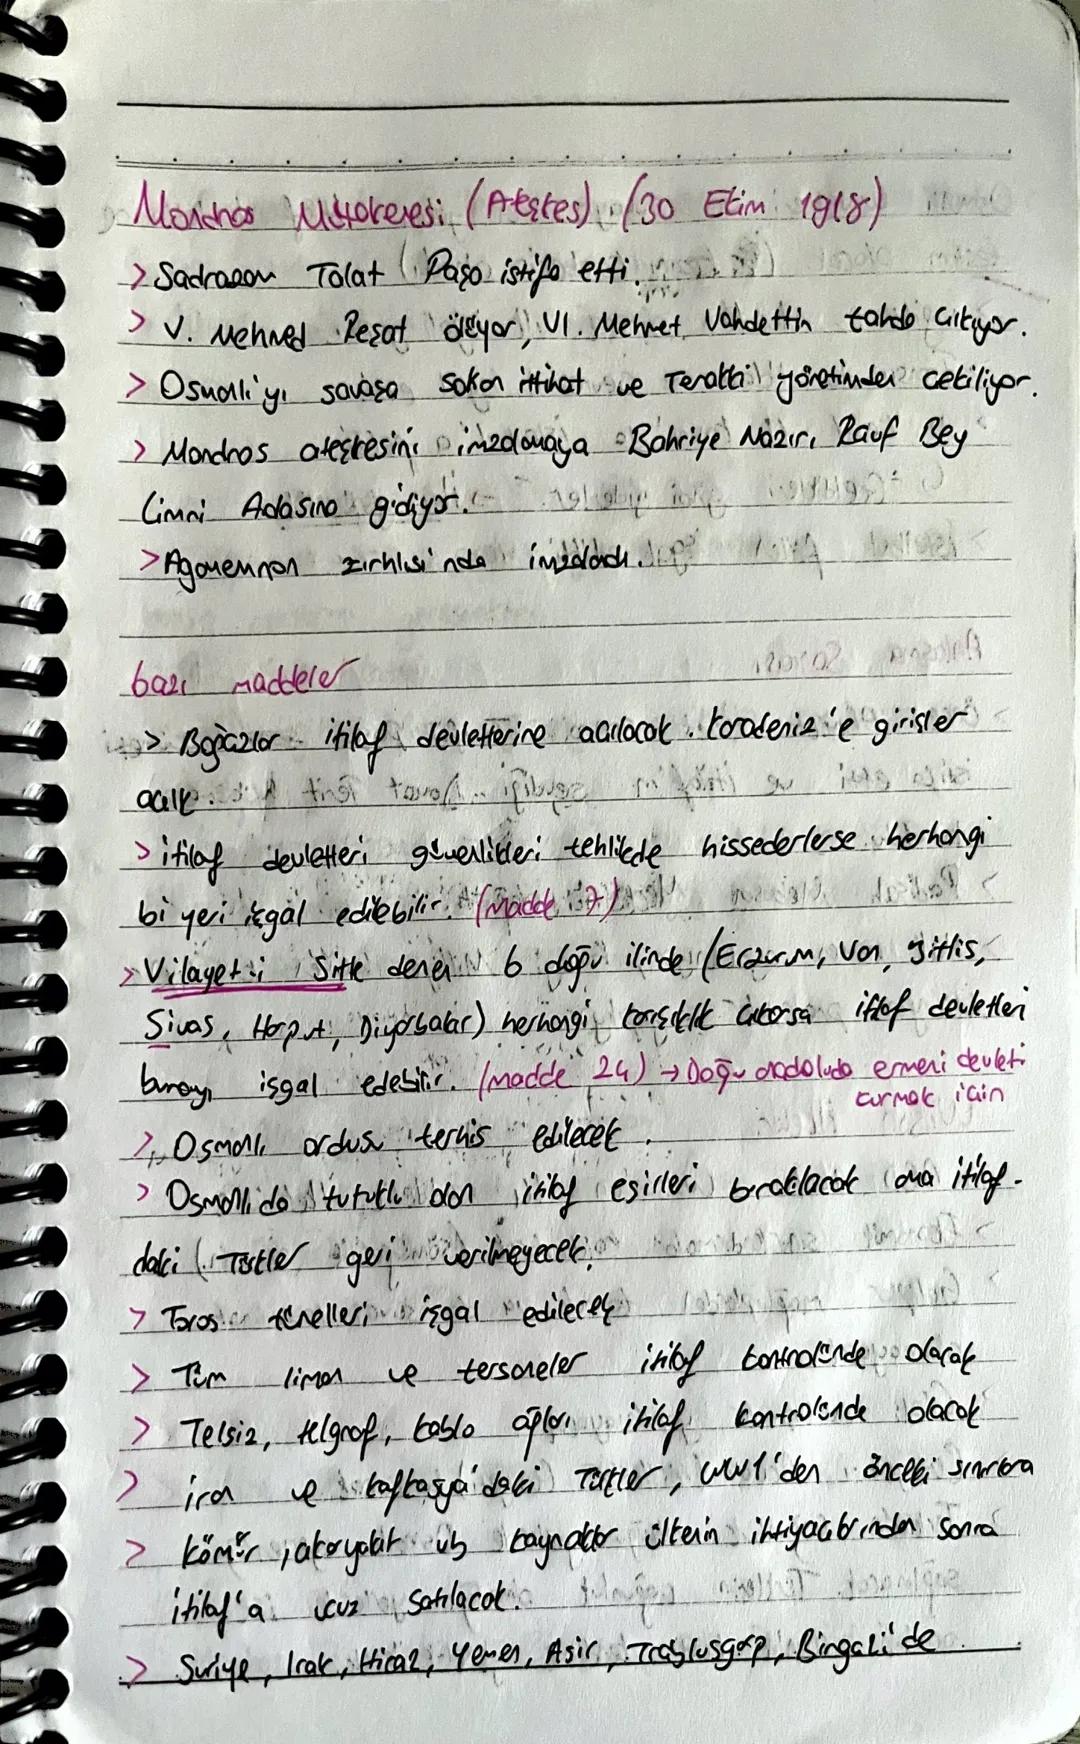 Mondros Mütarekesi (Ateşkes) (30 Ekim 1918)
> Sadrazam Talat Paşa istifa etti.
> V. Mehmed Reşat ölüyor, VI. Mehmet Vahdettin tahda çıkıyor.
> Osmanlı'yı savaşa sokan ittihat ve Terakki yönetimden çekiliyor.
> Mondros ateşkesini imzalamaya Bahriye Nazırı Rauf Bey
Limni Adasına gidiyor.
> Agamemnon zırhlısı'nda imzalandı.
bazı maddeler
> Boğazlar itilaf devletlerine açılacak. Karadeniz'e girişler
açık.
> itilaf devletleri güvenlikleri tehlikede hissederlerse herhangi
bi yeri işgal edilebilir. (Madde 7)
> Vilayet-i Sitte denen 6 doğu ilinde (Erzurum, Van, Bitlis,
Sivas, Harput, Diyarbakır) herhangi karışıklık çıkarsa itilaf devletleri
burayı işgal edebilir. (madde 24) → Doğu anadoluda ermeni devleti
kurmak için
> Osmanlı ordusu terhis edilecek.
> Osmanlıda tutuklu olan itilaf esirleri bırakılacak ama itilaf-
daki Türkler geri verilmeyecek.
> Toros tünelleri işgal edilecek
> Tüm liman ve tersaneler itilaf kontrolünde olacak
> Telsiz, telgraf, kablo ağları itilaf kontrolünde olacak
> iran ve kafkasya'daki Türkler, WW1'den önceki sınırlara
> kömür, akaryakıt vb kaynaklar ülkenin ihtiyaçlarından sonra
itilaf'a ucuz satılacak.
> Suriye, Irak, Hicaz, Yemen, Asir, Trablusgarp, Bingazi'de